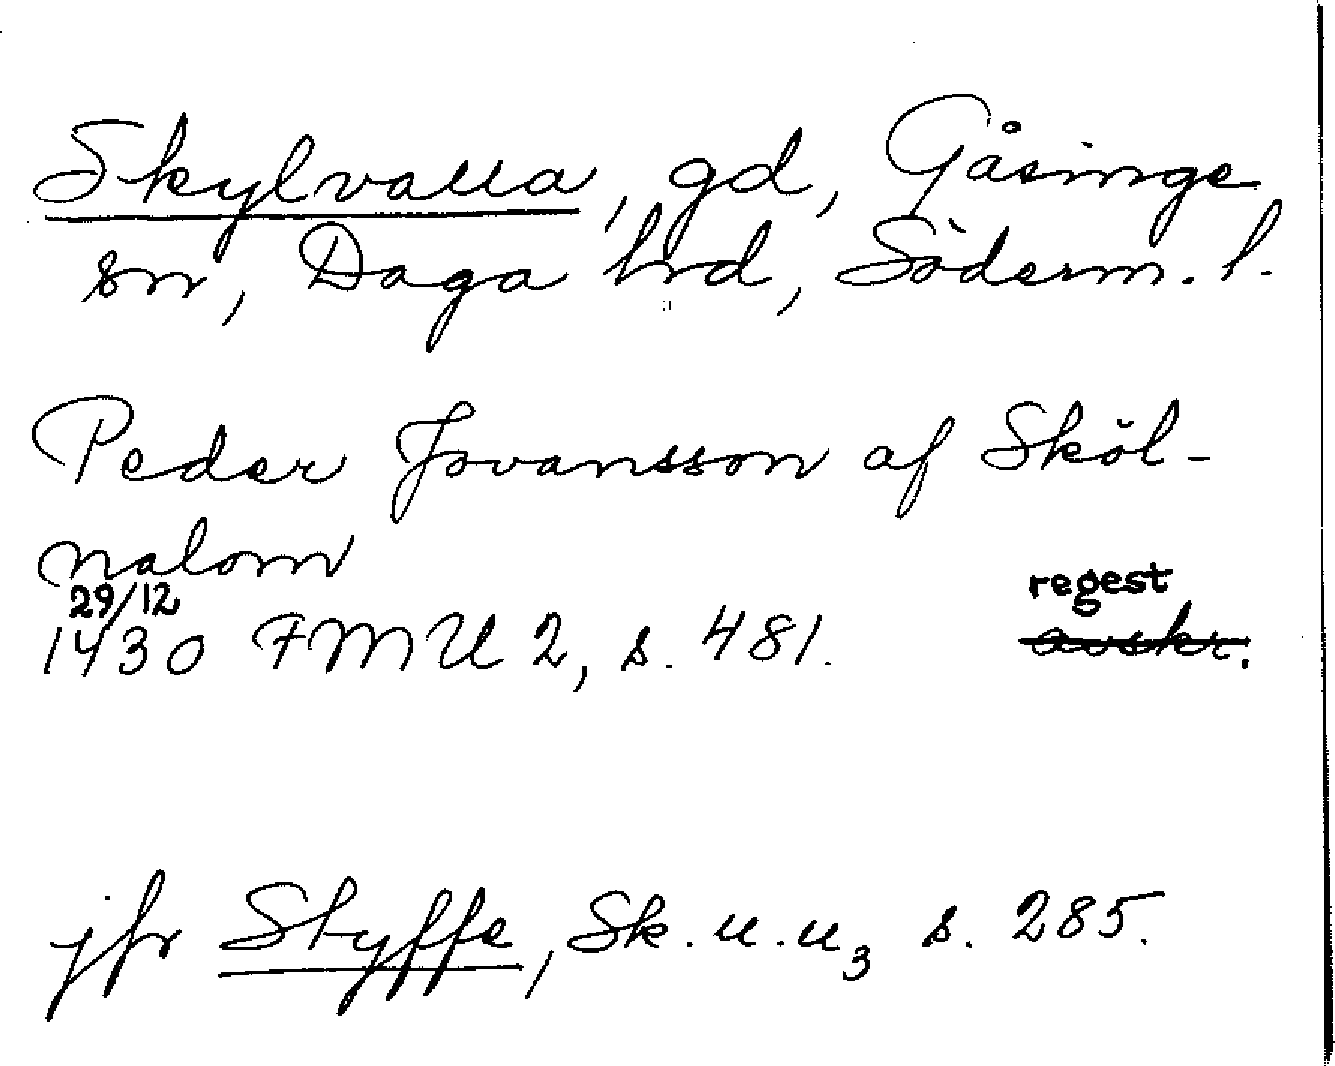 Skylvalla, gd, Gåsinge
sn, Daga hrd, Söderm. l.
Peder Jovansson af Sköl-
nalom
29/12 regest
1430 FMU 2, s. 481. avskr.
jfr Styffe, Sk. u. u3 s. 285.